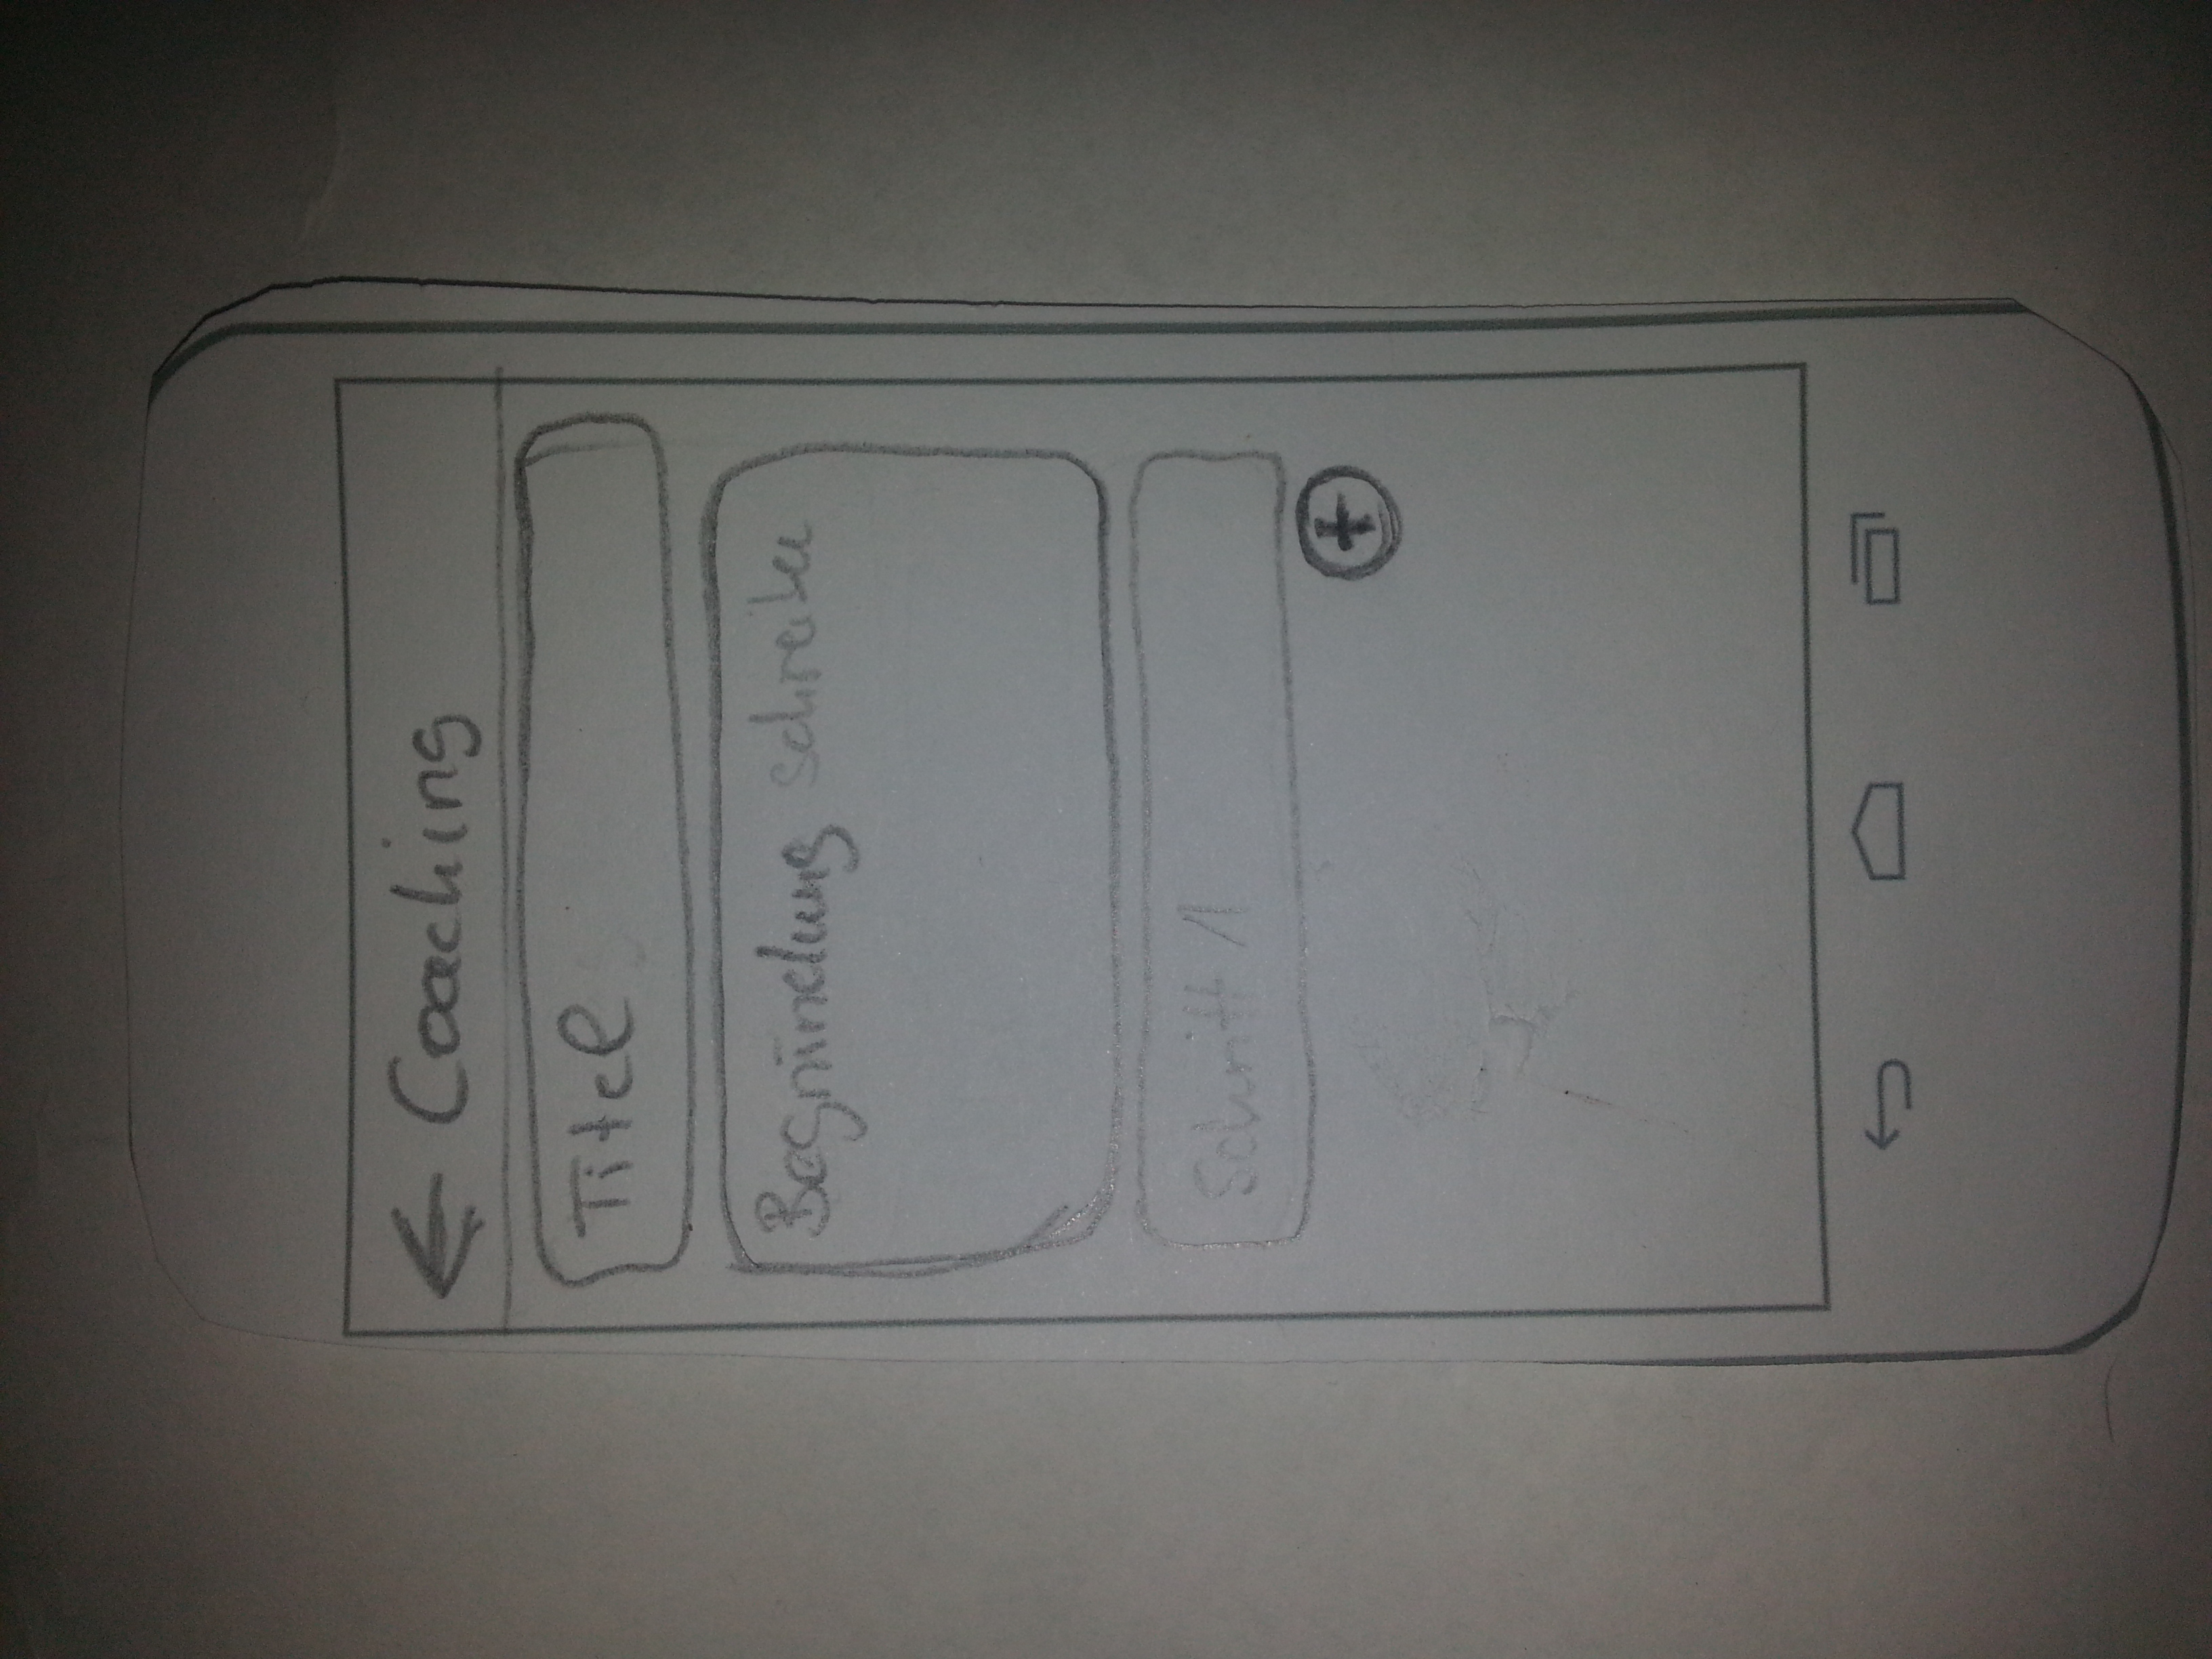 ← Coaching
Titel
Begründung schreiben
Schritt 1
+